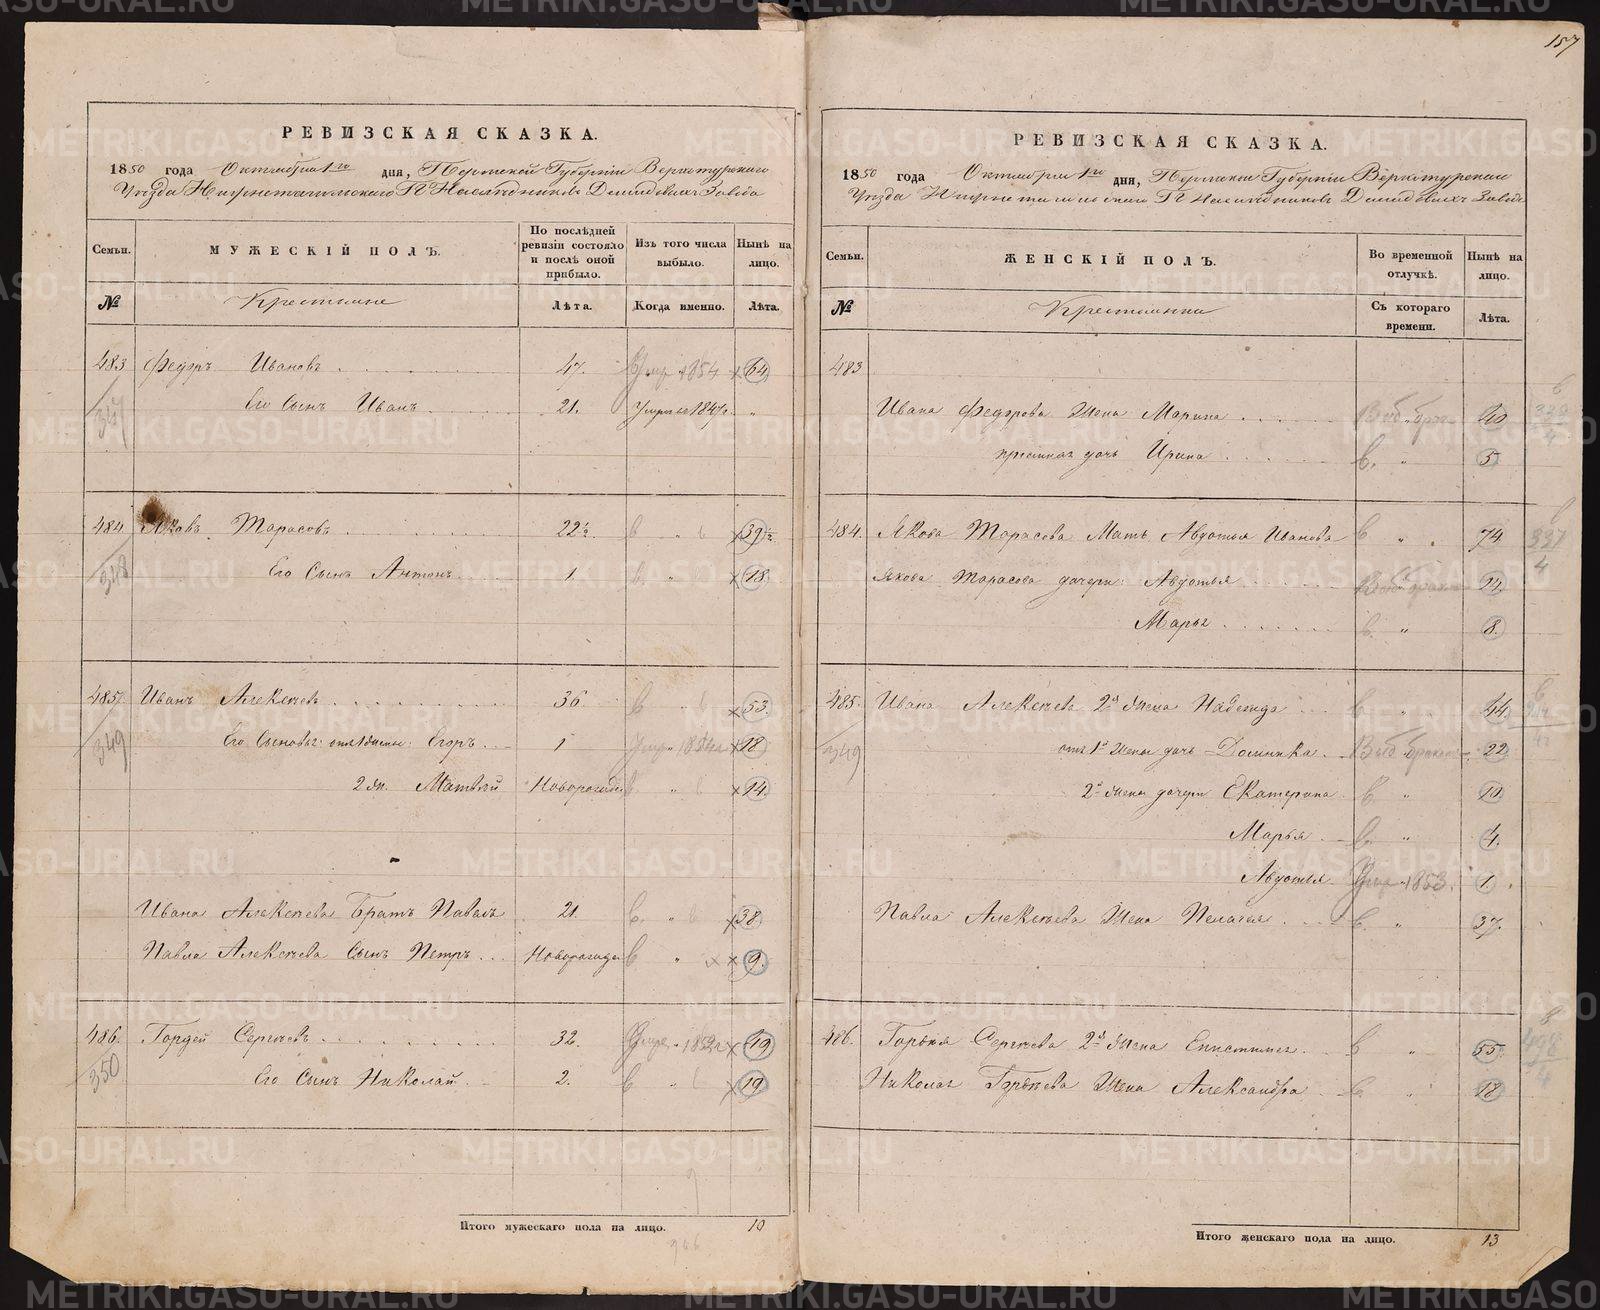 157
РЕВИЗСКАЯ СКАЗКА.
1850 года Октября 1го дня, Пермской Губернии Верхотурского
Уѣзда Нижнетагильского Гг Наслѣдниковъ Демидовыхъ Завода
Семьи. МУЖЕСКІЙ ПОЛЪ. По послѣдней ревизіи состояло и послѣ оной прибыло. Изъ того числа выбыло. Нынѣ на лицо.
№ Крестьяне Лѣта. Когда именно. Лѣта.
483 Федоръ Ивановъ 47. Умер 1854 64
347 Его Сынъ Иванъ 21. Умеръ 1847. "
484. Яковъ Тарасовъ 22½ в " 39½
348 Его Сынъ Антонъ 1. в " 18.
485. Иванъ Алексѣевъ 36 в 53.
349 Его Сыновья: отъ 1 жены: Егоръ 1 Умер 1854 18
2 й. Матвѣй Новорожден " 14.
Ивана Алексѣева Братъ Павелъ 21. в. " 38
Павла Алексѣева Сынъ Петръ Новорожден в " 9.
486. Гордей Сергѣевъ 32. Умер 49
350 Его Сынъ Николай 2. в " 19
Итого мужескаго пола на лицо. 10
966
РЕВИЗСКАЯ СКАЗКА.
1850 года Октября 1го дня, Пермской Губерніи Верхотурского
Уѣзда Нижнетагильского Гг Наслѣдниковъ Демидовыхъ Завода
Семьи. ЖЕНСКІЙ ПОЛЪ. Во временной отлучкѣ. Нынѣ на лицо.
№ Крестьянки Съ котораго времени. Лѣта.
483
Ивана Федорова Жена Марина 40
приемная дочь Ирина в. " 5
484. Якова Тарасова Мать Авдотья Иванова в " 74 337 4
Якова Тарасова дочери: Авдотья 14.
Марья в. " 8.
485. Ивана Алексѣева 2я Жена Надежда в " 44
349 отъ 1й Жены дочь Домника 22
2й Жены дочери Екатерина в. " 10
Марья в. " 4.
Авдотья Умер 1853. 1.
Павла Алексѣева Жена Пелагея в " 37.
486. Гордея Сергѣева 2я Жена Епистимья в " 55.
Николая Гордѣева Жена Александра в " 18
Итого женскаго пола на лицо. 13
METRIKI.GASO-URAL.RU